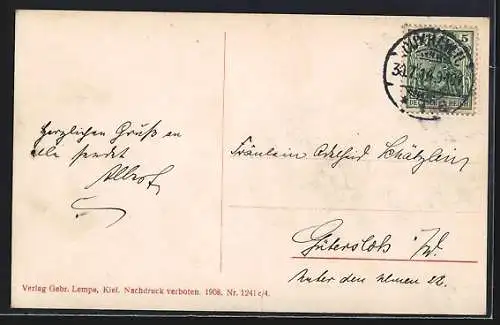 herzlichen Gruß an
alle sendet
Fräulein Adelheid Schätzlein
Gütersloh i/W.
Unter den Ulmen 22.
5
DEUTSCHES REICH
Verlag Gebr. Lempe, Kiel. Nachdruck verboten. 1908. Nr. 1241 c/4.